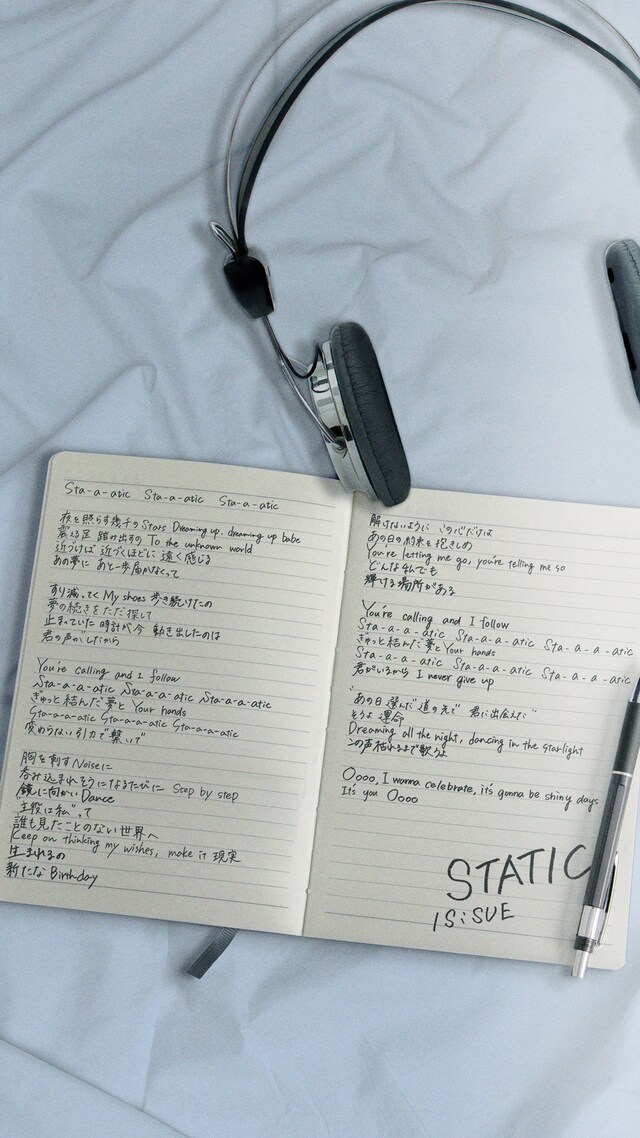 Sta-a-atic Sta-a-atic Sta-a-atic
夜を照らす幾千の Stars Dreaming up, dreaming up babe
震える足 踏み出すの To the unknown world
近づけば 近づくほどに 遠く感じる
あの夢に あと一歩届かなくって
すり減ってく My shoes 歩き続けたの
夢の続きをただ探して
止まっていた 時計が今 動き出したのは
君の声がしたから
You're calling and I follow
Sta-a-a-atic Sta-a-a-atic Sta-a-a-atic
ぎゅっと結んだ夢と Your hands
Sta-a-a-atic Sta-a-a-atic Sta-a-a-atic
変わらない引力で"繋いで"
胸を刺す Noiseに
呑み込まれそうになるたびに Step by step
鏡に向かい Dance
"主役は私"って
誰も見たことのない世界へ
Keep on thinking my wishes, make it 現実
生まれるの
新たな Birthday
解けないように この心だけは
あの日の約束を抱きしめ
You're letting me go, you're telling me so
どんな私でも
輝ける場所がある
You're calling and I follow
Sta-a-a-atic Sta-a-a-atic Sta-a-a-atic
ぎゅっと結んだ夢と Your hands
Sta-a-a-atic Sta-a-a-atic Sta-a-a-atic
君がいるから I never give up
"あの日 選んだ 道の先で 君に出会えた"
そうよ 運命
Dreaming all the night, dancing in the starlight
この声枯れるまで歌うよ
Oooo, I wanna celebrate, it's gonna be shiny days
It's you Oooo
STATIC
IS:SUE